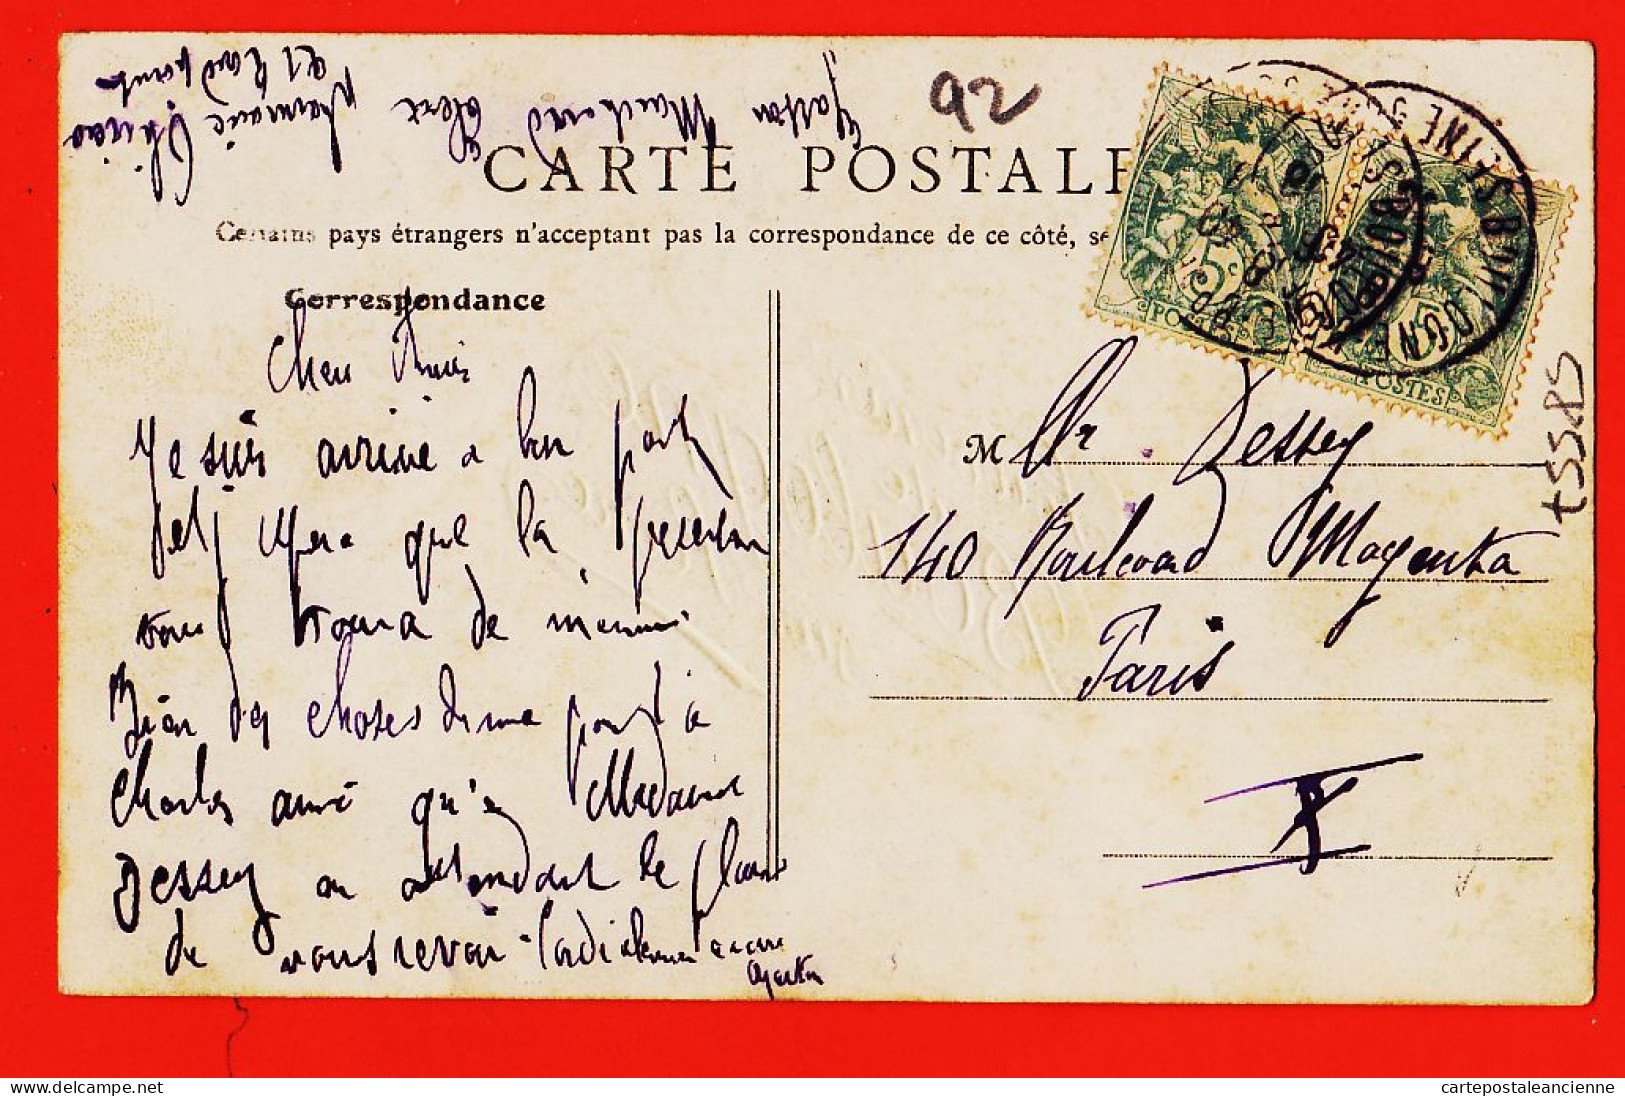 92
CARTE POSTALE
Certains pays étrangers n'acceptent pas la correspondance de ce côté, se
Correspondance
Cher Amis
Je suis arrivé à bon port
et j'espère que la présente
vous trouvera de même
Bien des choses de ma part à
Charles ainsi qu'à Madame
Dessey en attendant le plaisir
de vous revoir. Cordialement à vous
Gaston
Gaston Marchand
Pharmacie
et Rond point
5c
POSTES
5
POSTES
BOULOGNE S SEINE
M Mr Dessey
140 Boulevard Magenta
Paris
X
t5585
cartepostaleancienne
www.delcampe.net